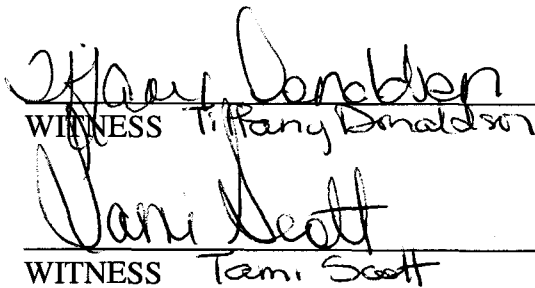 Tiffany Donaldson
WITNESS Tiffany Donaldson
Tami Scott
WITNESS Tami Scott